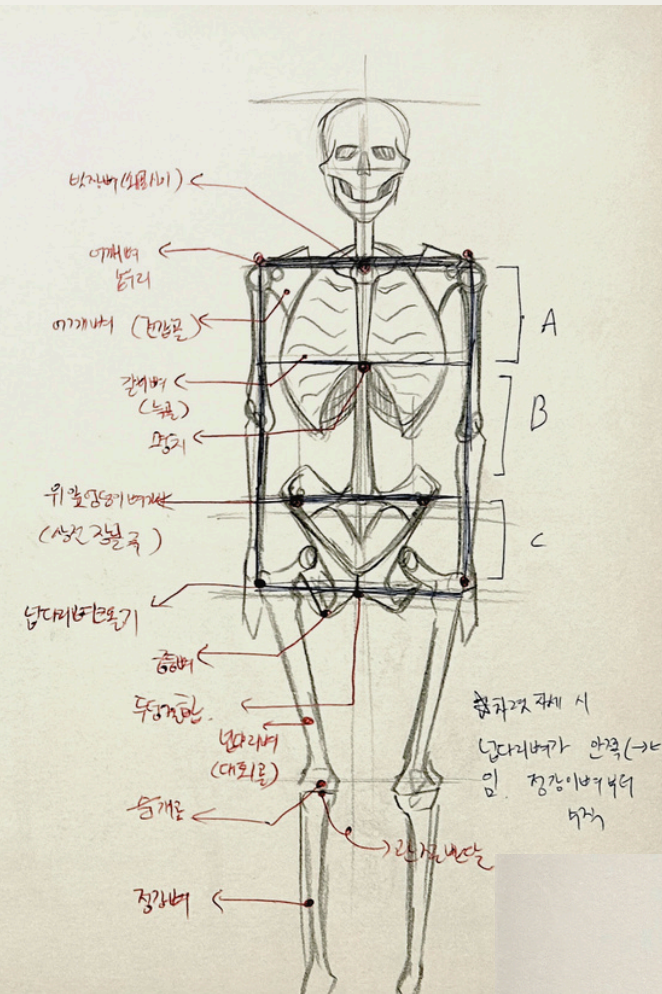 빗장뼈(쇄골)
어깨뼈
봉우리
어깨뼈 (견갑골)
갈비뼈
(늑골)
명치
A
B
C
위앞엉덩이뼈가시
(상전장골극)
넙다리뼈큰돌기
궁둥뼈
두덩결합.
넙다리뼈
(대퇴골)
관절반달
정강뼈
차렷 자세 시
넙다리뼈가 안쪽(→←
임. 정강이뼈부터
수직